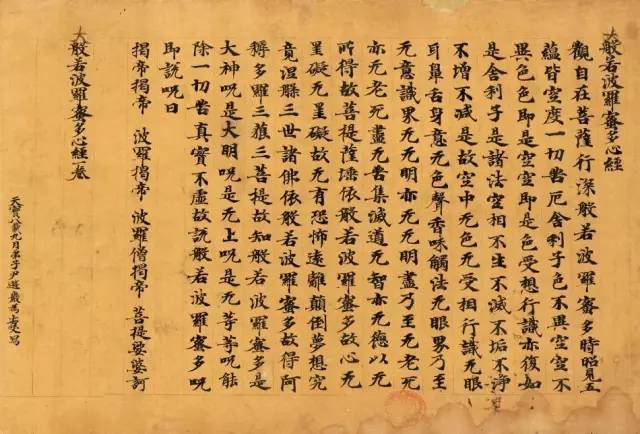 大般若波羅蜜多心經
觀自在菩薩行深般若波羅蜜多時照見五
蘊皆空度一切苦厄舍利子色不異空空不
異色色即是空空即是色受想行識亦復如
是舍利子是諸法空相不生不滅不垢不淨
不增不減是故空中无色无受相行識无眼
耳鼻舌身意无色聲香味觸法无眼界乃至
无意識界无无明亦无无明盡乃至无老死
亦无老死盡无苦集滅道无智亦无德以无
所得故菩提薩埵依般若波羅蜜多故心无
罣礙无罣礙故无有恐怖遠離顛倒夢想究
竟涅槃三世諸佛依般若波羅蜜多故得阿
耨多羅三藐三菩提故知般若波羅蜜多是
大神呪是大明呪是无上呪是无等等呪能
除一切苦真實不虛故說般若波羅蜜多呪
即說呪曰
揭帝揭帝 波羅揭帝 波羅僧揭帝 菩提娑婆訶
大般若波羅蜜多心經一卷
天寶八載九月弟子尹遊